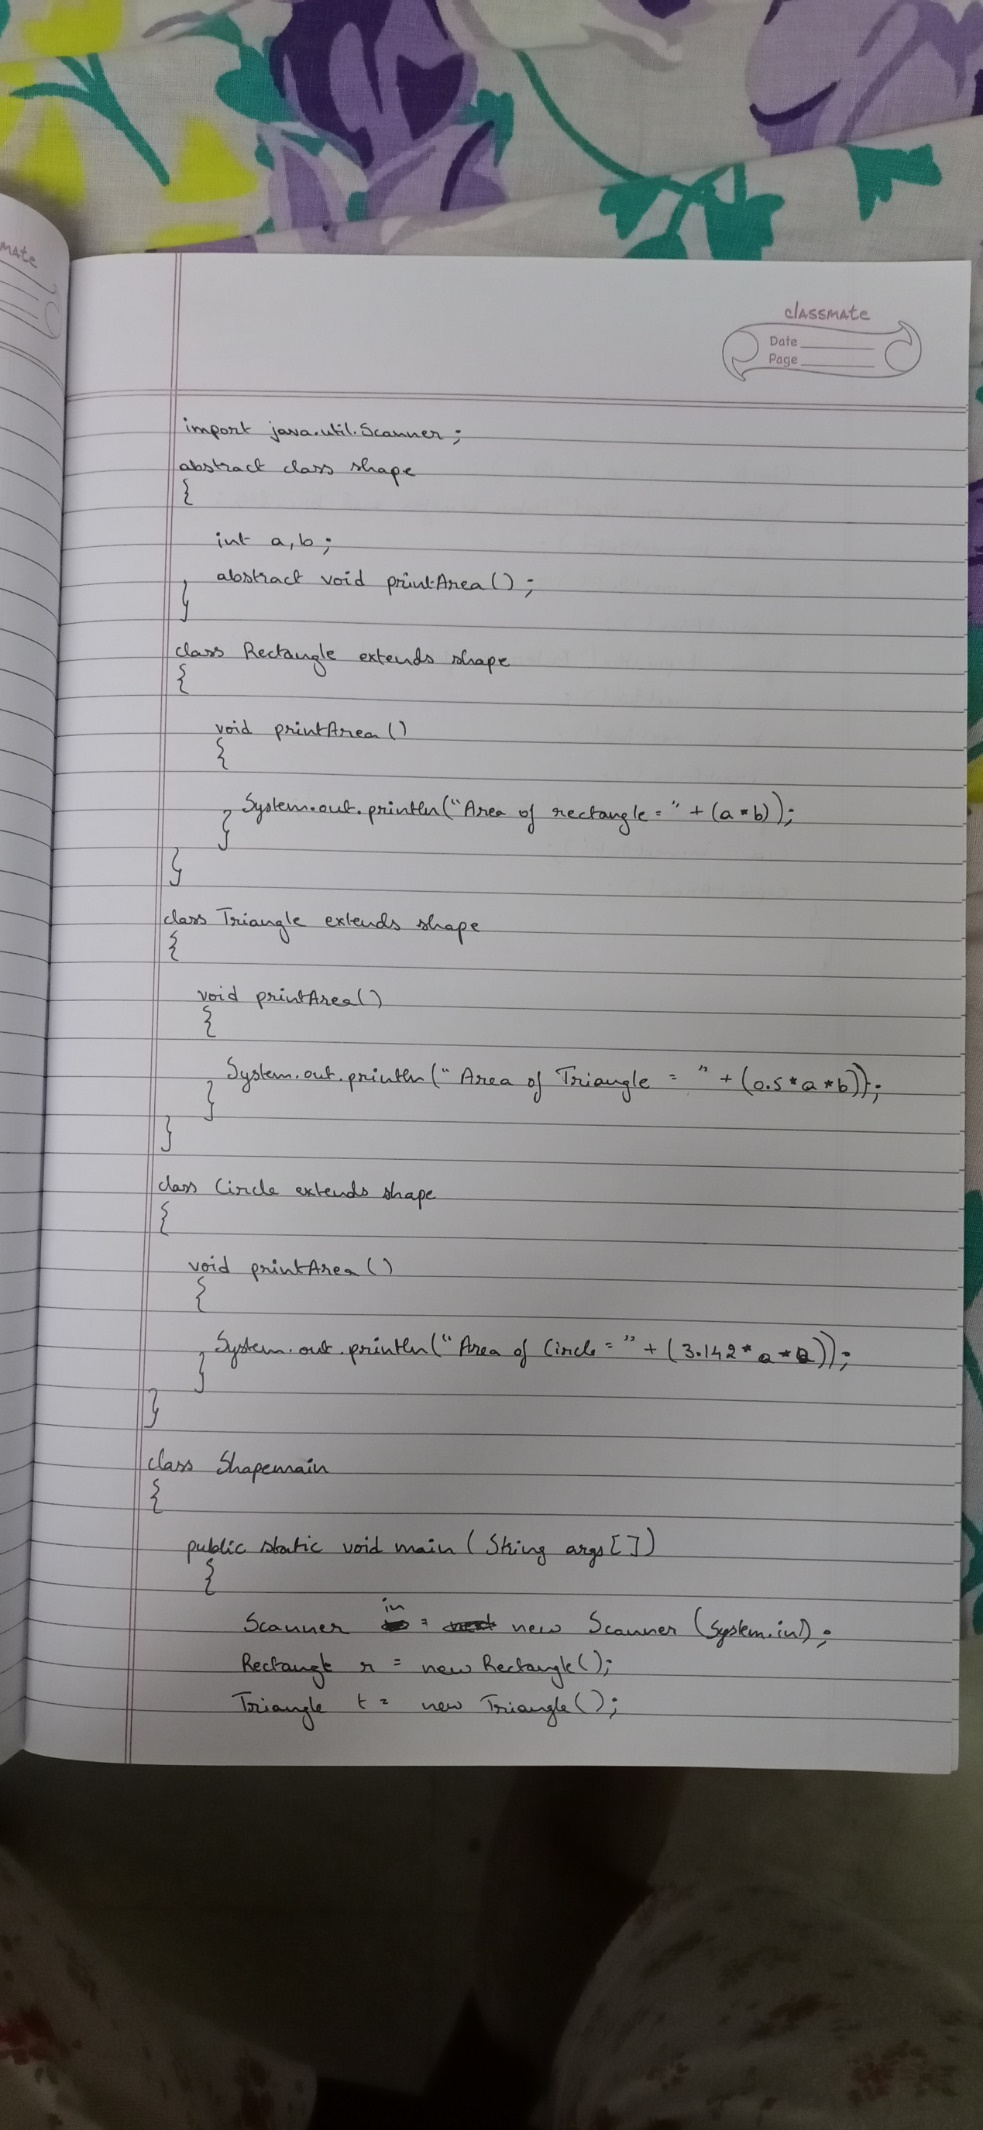 mate
classmate
Date
Page
import java.util.Scanner;
abstract class shape
{
int a,b;
abstract void printArea();
}
class Rectangle extends shape
{
void printArea()
{
System.out.println("Area of rectangle = " + (a*b));
}
}
class Triangle extends shape
{
void printArea()
{
System.out.println(" Area of Triangle = " + (0.5*a*b));
}
}
class Circle extends shape
{
void printArea()
{
System.out.println(" Area of Circle = " + (3.142*a*a));
}
}
class Shapemain
{
public static void main (String args[])
{
Scanner in = new Scanner (System.in);
Rectangle r = new Rectangle();
Triangle t = new Triangle();